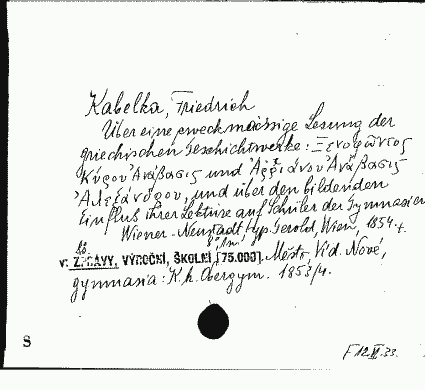 Kabelka, Friedrich
Über eine zweckmässige Lesung der
griechischen Geschichtwerke: Ξενοφῶντος
Κύρου Ἀνάβασις und Ἀῤῥιάνου Ἀνάβασις
Ἀλεξάνδρου, und über den bildenden
Einfluß ihrer Lektüre auf Schüler der Gymnasien
Wiener-Neustadt, typ. Gerold, Wien, 1854.
v: ZPRÁVY, VÝROČNÍ, ŠKOLNÍ [75.000]. Město, Víd. Nové,
gymnasia: K.k. Obergym. 1853/4.
8
F 12.VI.33.